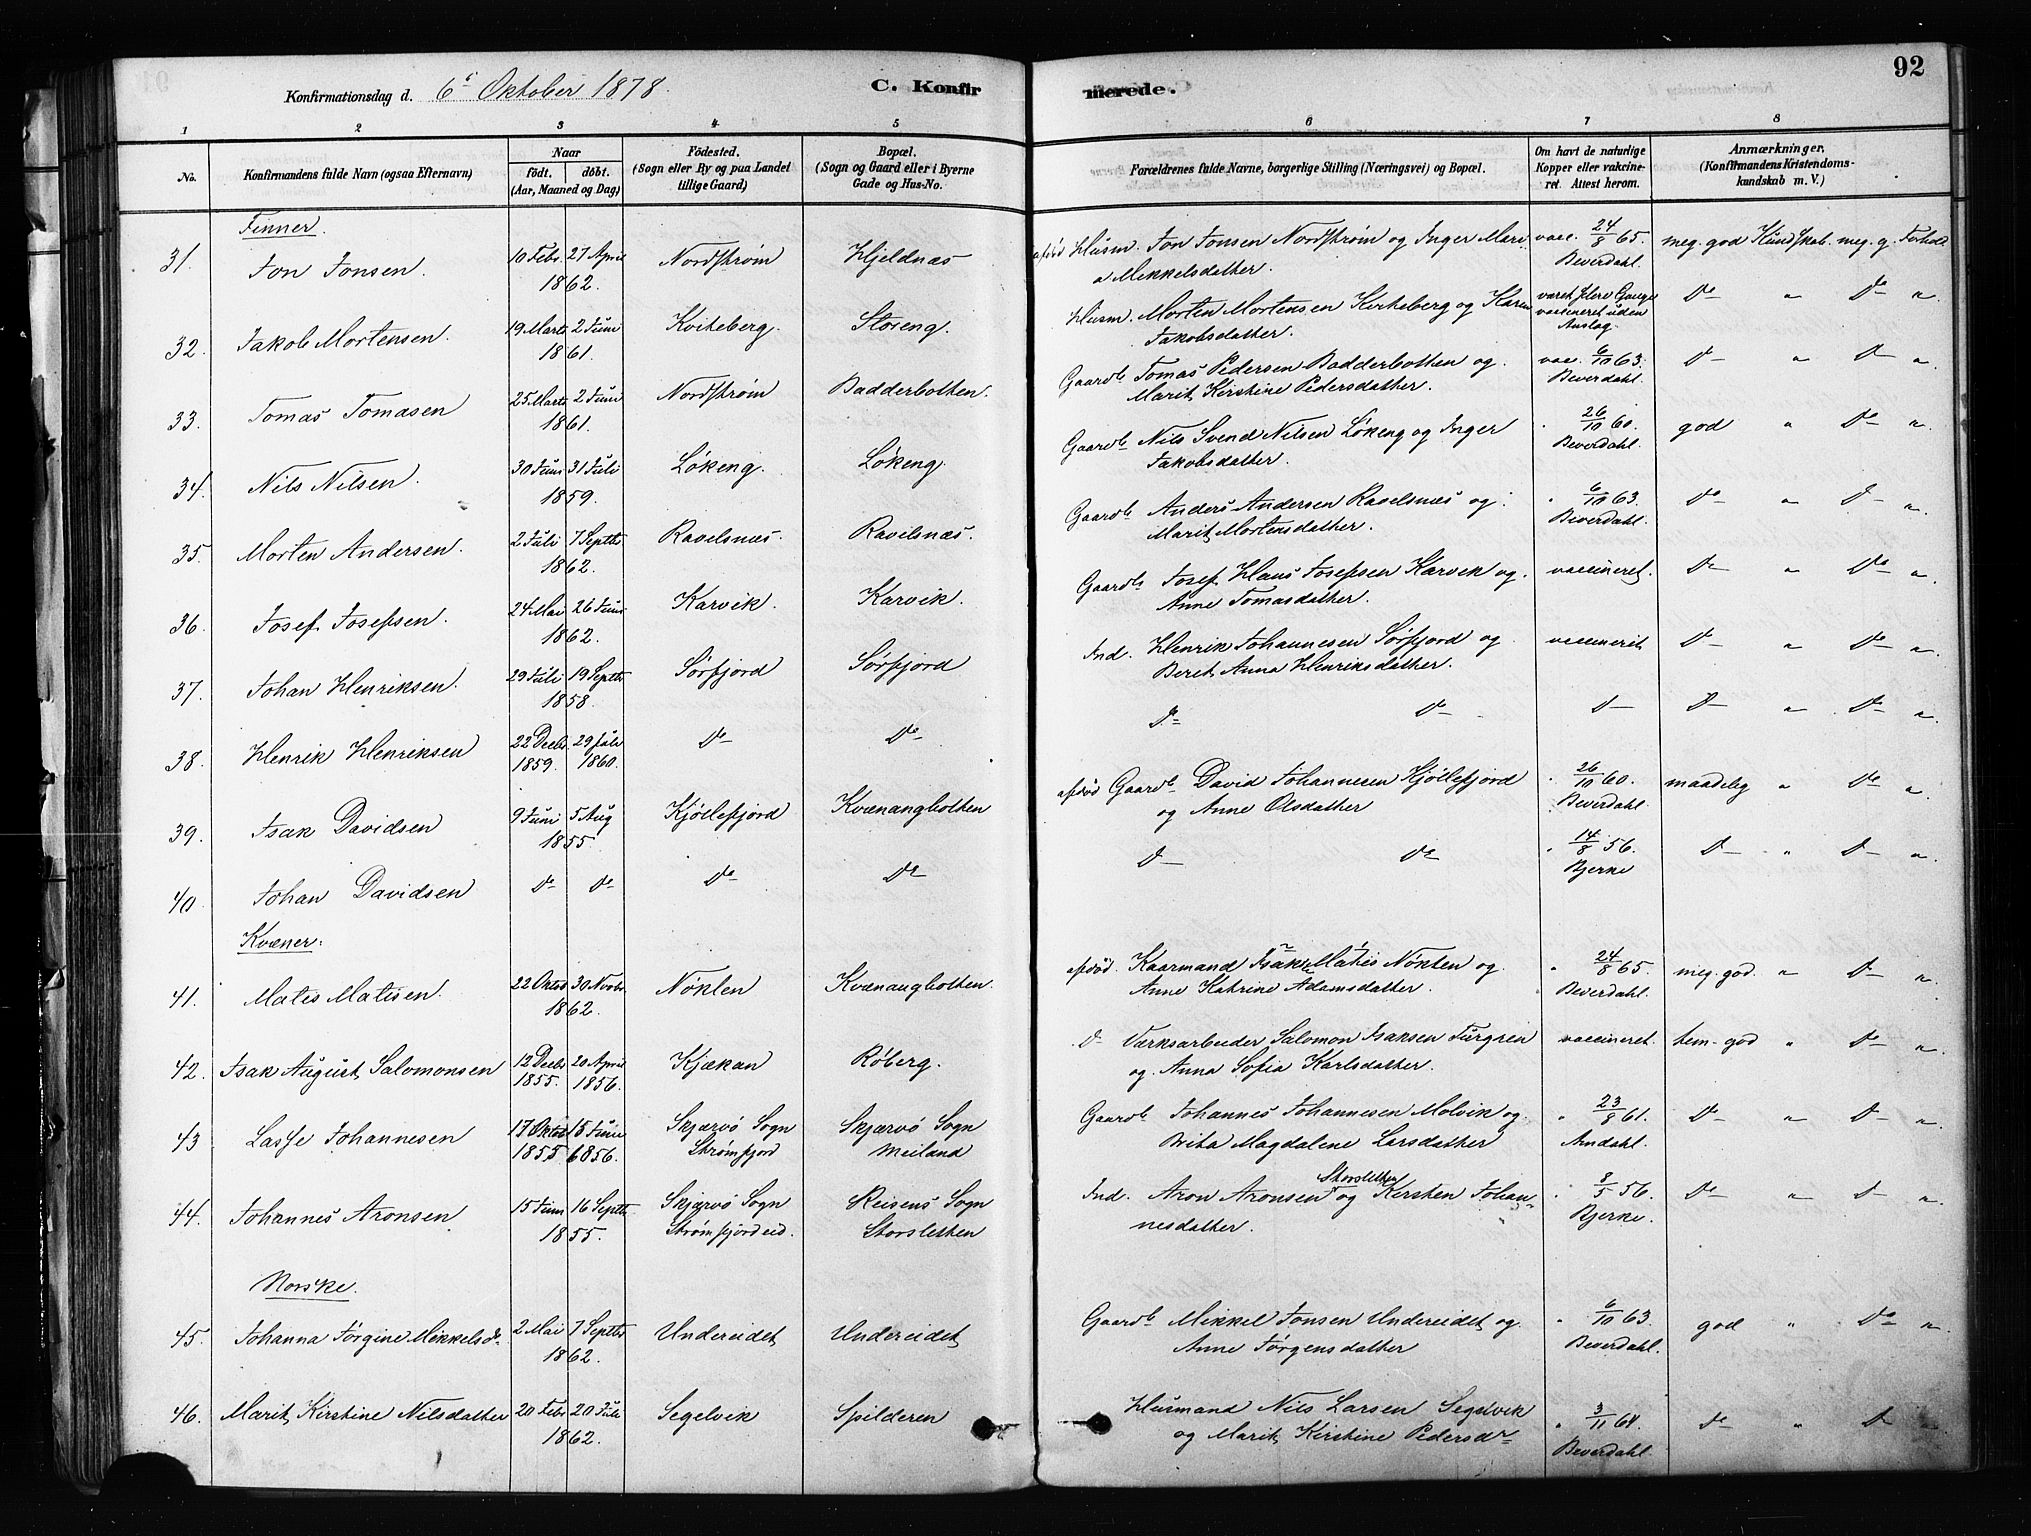 92
Konfirmationsdag d. 6t Oktober 1878.
C. Konfirmerede.
1 2 3 4 5 6 7 8
No.
Konfirmandens fulde Navn (ogsaa Efternavn)
Naar
födt. döbt.
(Aar, Maaned og Dag)
Födested.
(Sogn eller By og paa Landet
tillige Gaard)
Bopæl.
(Sogn og Gaard eller i Byerne
Gade og Hus-No.
Forældrenes fulde Navne, borgerlige Stilling (Næringsvei) og Bopæl.
Om havt de naturlige
Kopper eller vakcine-
ret. Attest herom.
Anmærkninger,
(Konfirmandens Kristendoms-
kundskab m. V.)
Finner.
31. Jon Jonsen. 10 Febr. 27 April 1862. Nordstrøm Hjeldnæs afdød Husm. Jon Jonsen Nordstrøm og Inger Mari-
a Mikkelsdatter. vacc. 24/8 65. Beverdahl. meg. god Kundskab. meg. g. Forhold
32. Jakob Mortensen. 19 Marts 2 Juni 1861. Kviteberg. Storeng. Husm. Morten Mortensen Kviteberg og Karen
Jakobsdatter. været flere Gange vaccineret uden Anslag. Do " Do "
33. Tomas Tomasen 25 Marts 2 Juni 1861. Nordstrøm Badderbotten. Gaardb. Tomas Pedersen Badderbotten og
Marit Kirstine Pedersdatter. vacc. 6/10 63. Beverdahl. Do " Do "
34. Nils Nilsen. 30 Juni 31 Juli 1859. Løkeng. Løkeng. Gaardb. Nils Svend Nilsen Løkeng og Inger
Jakobsdatter. " 26/10 60. Beverdahl. god " Do "
35. Morten Andersen. 2 Juli 7 Septbr. 1862. Ravelsnæs. Ravelsnæs. Gaardb. Anders Andersen Ravelsnæs og
Marit Mortensdatter. " 6/10 63. Beverdahl. Do " Do "
36. Josef Josefsen. 24 Mai 26 Juni 1862. Karvik. Karvik. Gaardb. Josef Hans Josefsen Karvik og
Anne Tomasdatter. vaccineret. Do " Do "
37. Johan Henriksen. 29 Juli 19 Septbr. 1858. Sørfjord Sørfjord Ind. Henrik Johannesen Sørfjord og
Beret Anna Henriksdatter. vaccineret Do " Do "
38. Henrik Henriksen 22 Decbr. 1859. 29 Juli 1860. Do Do Do Do Do Do " Do "
39. Isak Davidsen 9 Juni 5 Aug 1855. Kjøllefjord Kvænangbotten afdød Gaardb. David Johannesen Kjøllefjord
og Anne Olsdatter " 26/10 60. Beverdahl. maadelig " Do "
40. Johan Davidsen Do Do Do Do Do Do " 14/8 56. Bjerke Do " Do "
Kvæner.
41. Matis Matisen. 22 Octbr 30 Novbr. 1862. Nöklen Kvænangbotten. afdød. Kaarmand Isak Matis Nöklen og
Anne Katrine Adamsdatter. " 24/8 65. Beverdahl. meg. god. " Do "
42. Isak August Salomonsen 12 Decbr 1855. 20 April 1856. Kjækan Røberg. Do Værksarbeider Salomon Isaksen Turgren
og Anna Sofia Karlsdatter. vaccineret. tem. god " Do "
43 Lasse Johannesen 17 Oktob 1855 15 Juni 1856. Skjærvö Sogn Strømfjord Skjærvö Sogn Meiland Gaardb. Johannes Johannesen Molvik og
Brita Magdalene Larsdatter " 23/8 61. Arndahl. Do " Do "
44. Johannes Aronsen 15 Juni 16 Septbr. 1855. Skjærvö Sogn Strømfjordeid. Reisens Sogn Storsletten Ind. Aron Aronsen Storsletten og Kirsten Johan-
nesdatter. " 8/5 56. Bjerke. Do " Do "
Norske.
45. Johanna Jörgine Mikkelsdr. 2 Mai 7 Septbr 1862. Undereidet Undereidet Gaardb. Mikkel Jonsen Undereidet og
Anne Jörgensdatter " 6/10 63. Beverdahl. god " Do "
46. Marit Kirstine Nilsdatter 20 Febr 20 Juli 1862. Segelvik Spilderen Husmand Nils Larsen Segelvik
og Marit Kirstine Pedersdr. " 3/11 64. Beverdahl. Do " Do "